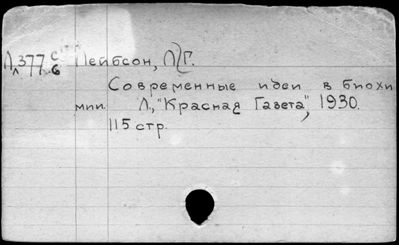 Л377 с/6 Лейбсон, Л. Г.
Современные идеи в биохи
мии. Л., "Красная Газета", 1930.
115 стр.